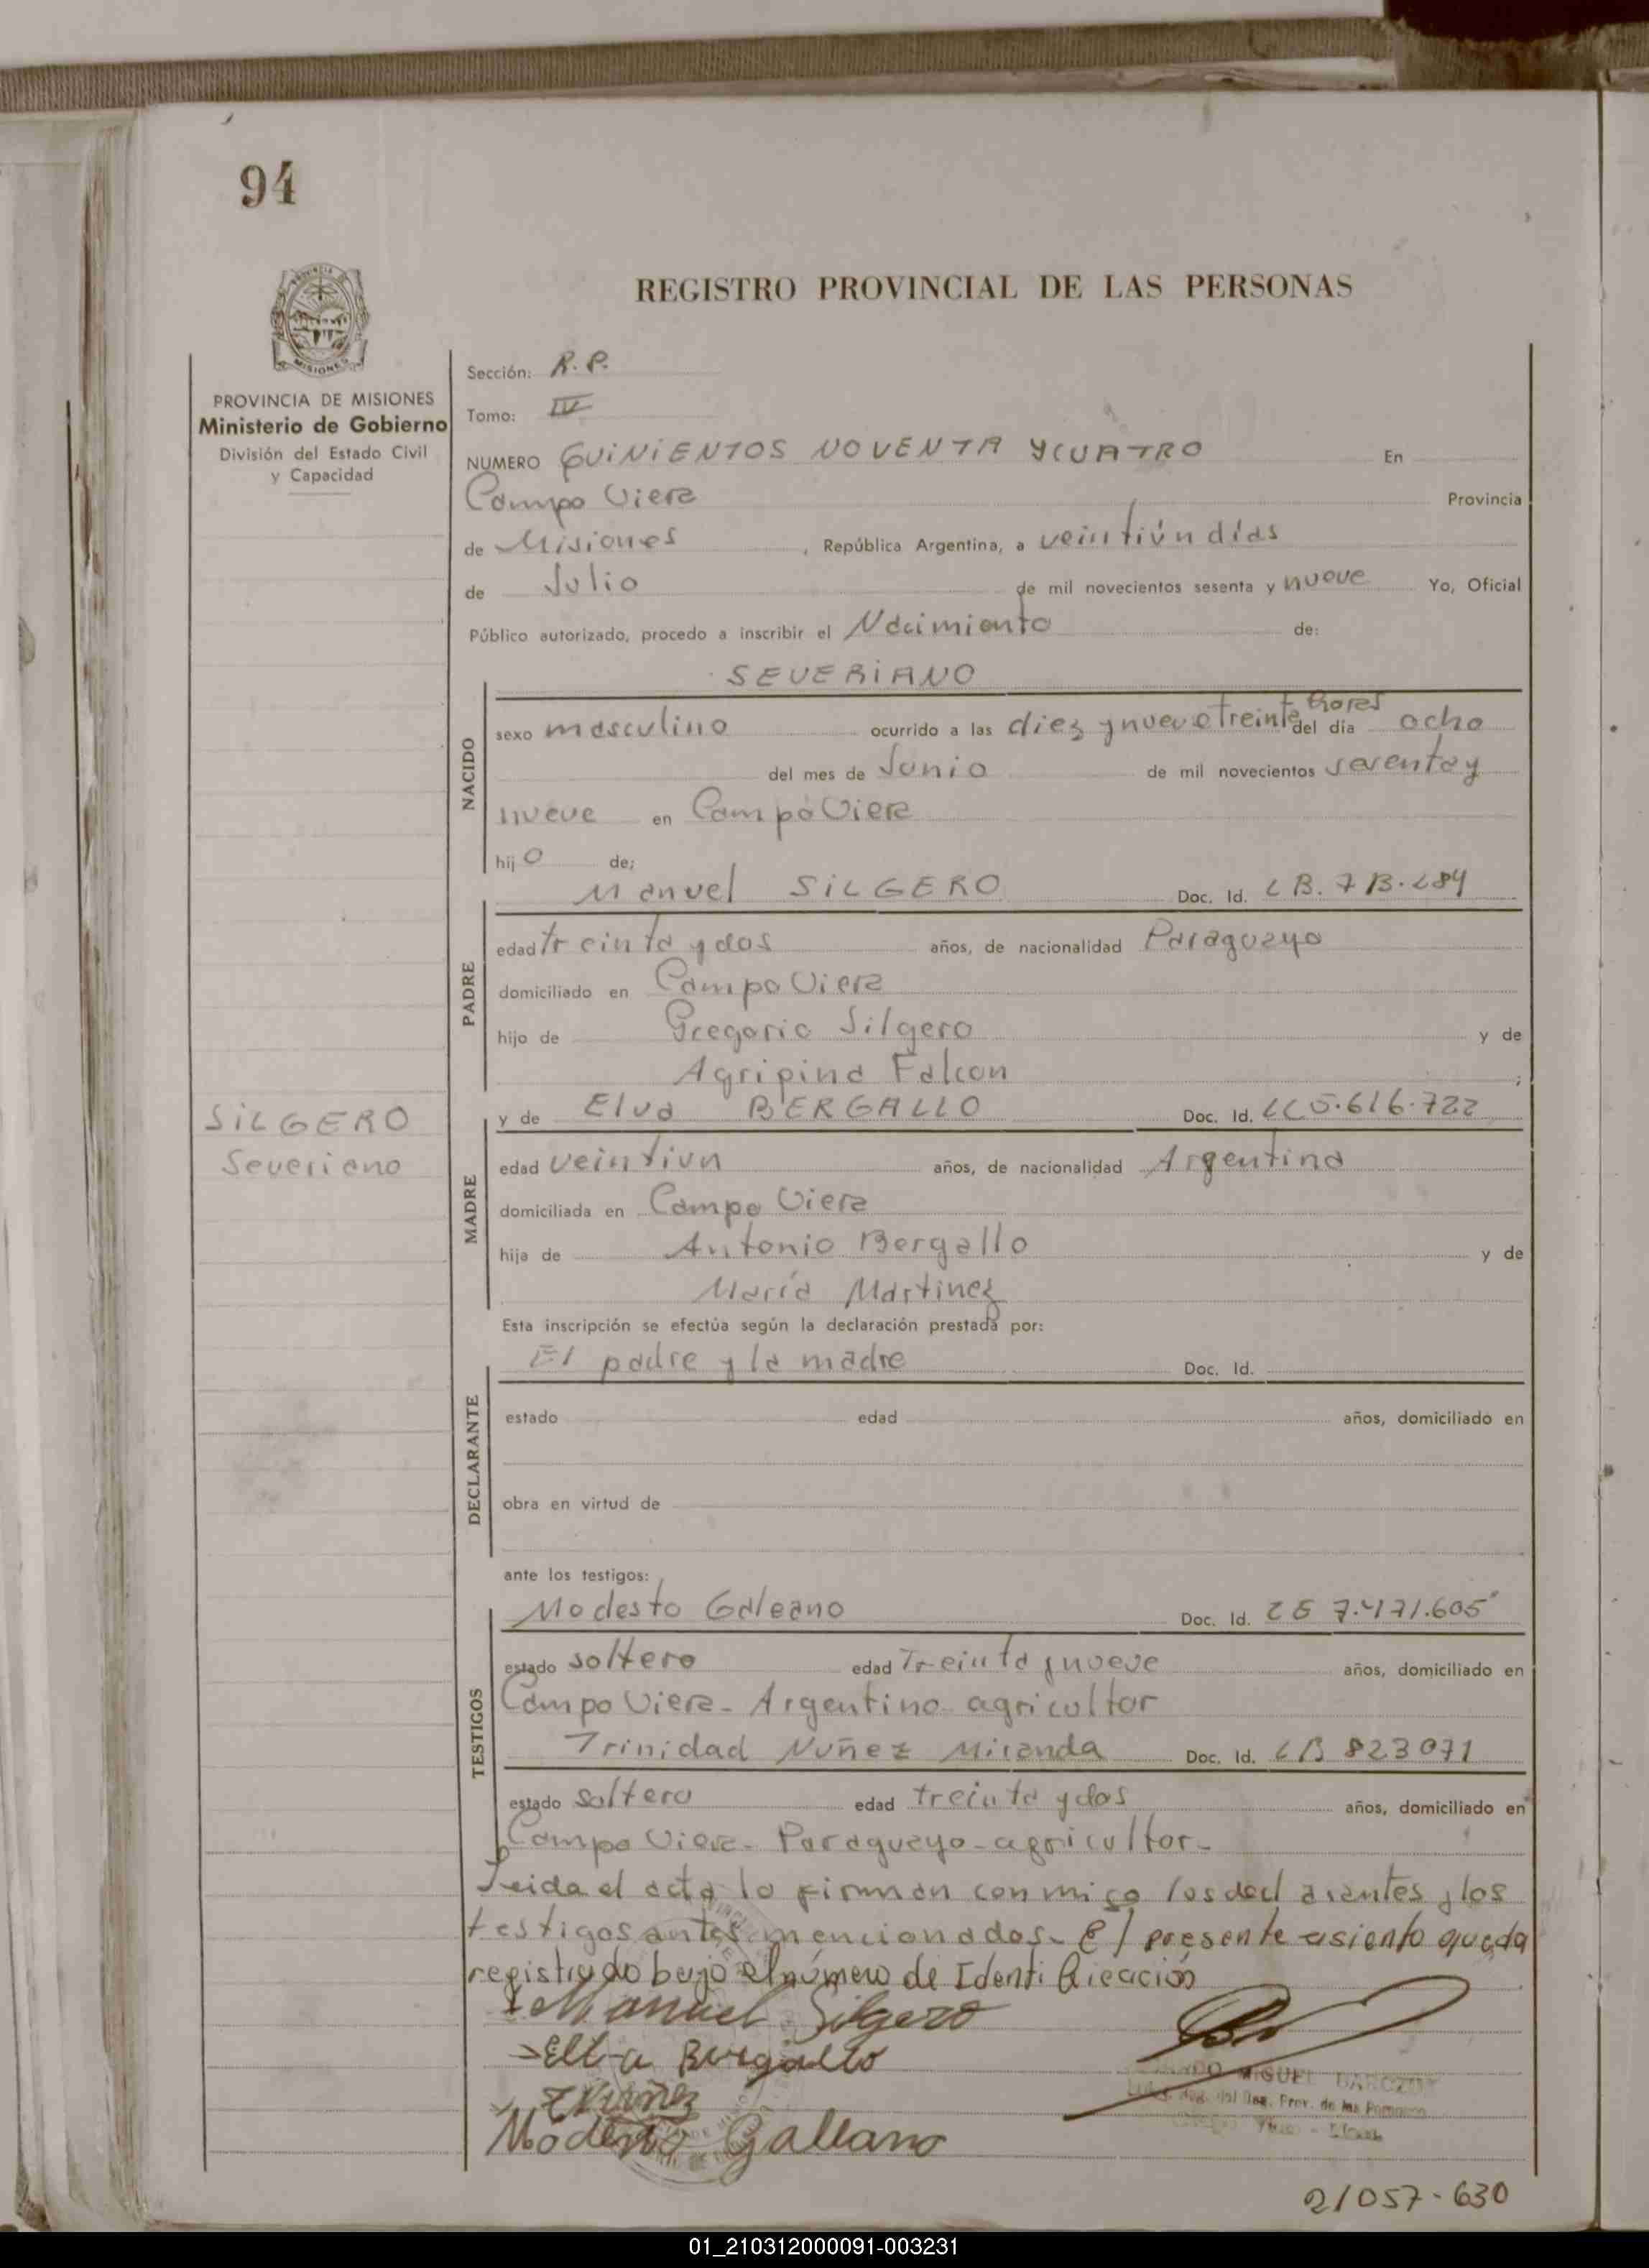 94
REGISTRO PROVINCIAL DE LAS PERSONAS
MISIONES
PROVINCIA DE MISIONES
Ministerio de Gobierno
División del Estado Civil
y Capacidad
Sección: R. P.
Tomo: IV
NUMERO QUINIENTOS NOVENTA Y CUATRO En
Campo Viera Provincia
de Misiones, República Argentina, a veintiún días
de Julio de mil novecientos sesenta y nueve Yo, Oficial
Público autorizado, procedo a inscribir el Nacimiento de:
SEVERIANO
NACIDO
sexo masculino ocurrido a las diez y nueve treinta horas del día ocho
del mes de Junio de mil novecientos sesenta y
nueve en Campo Viera
hijo de;
Manuel SILGERO Doc. Id.
PADRE
edad treinta y dos años, de nacionalidad Paraguaya
domiciliado en Campo Viera
hijo de Gregorio Silgero y de
Agripina Falcon ;
SILGERO
Severiano
y de Elva BERGALLO Doc. Id. LC 5.616.722
MADRE
edad veintiun años, de nacionalidad Argentina
domiciliada en Campo Viera
hija de Antonio Bergallo y de
María Martinez
Esta inscripción se efectúa según la declaración prestada por:
El padre y la madre Doc. Id.
DECLARANTE
estado edad años, domiciliado en
obra en virtud de
ante los testigos:
Modesto Galeano Doc. Id. 7.471.605
TESTIGOS
estado soltero edad Treinta y nueve años, domiciliado en
Campo Viera - Argentino agricultor
Trinidad Nuñez Miranda Doc. Id. 823071
estado soltero edad treinta y dos años, domiciliado en
Campo Viera - Paraguayo - agricultor -
Leida el acta la firman con migo los declarantes y los
testigos antes mencionados - El presente asiento queda
registrado bajo el número de Identificación
Manuel Silgero
Elva Bergallo
T Nuñez
Modesto Galleano
MIGUEL
Reg. Prov. de las Personas
21057-630
01_210312000091-003231